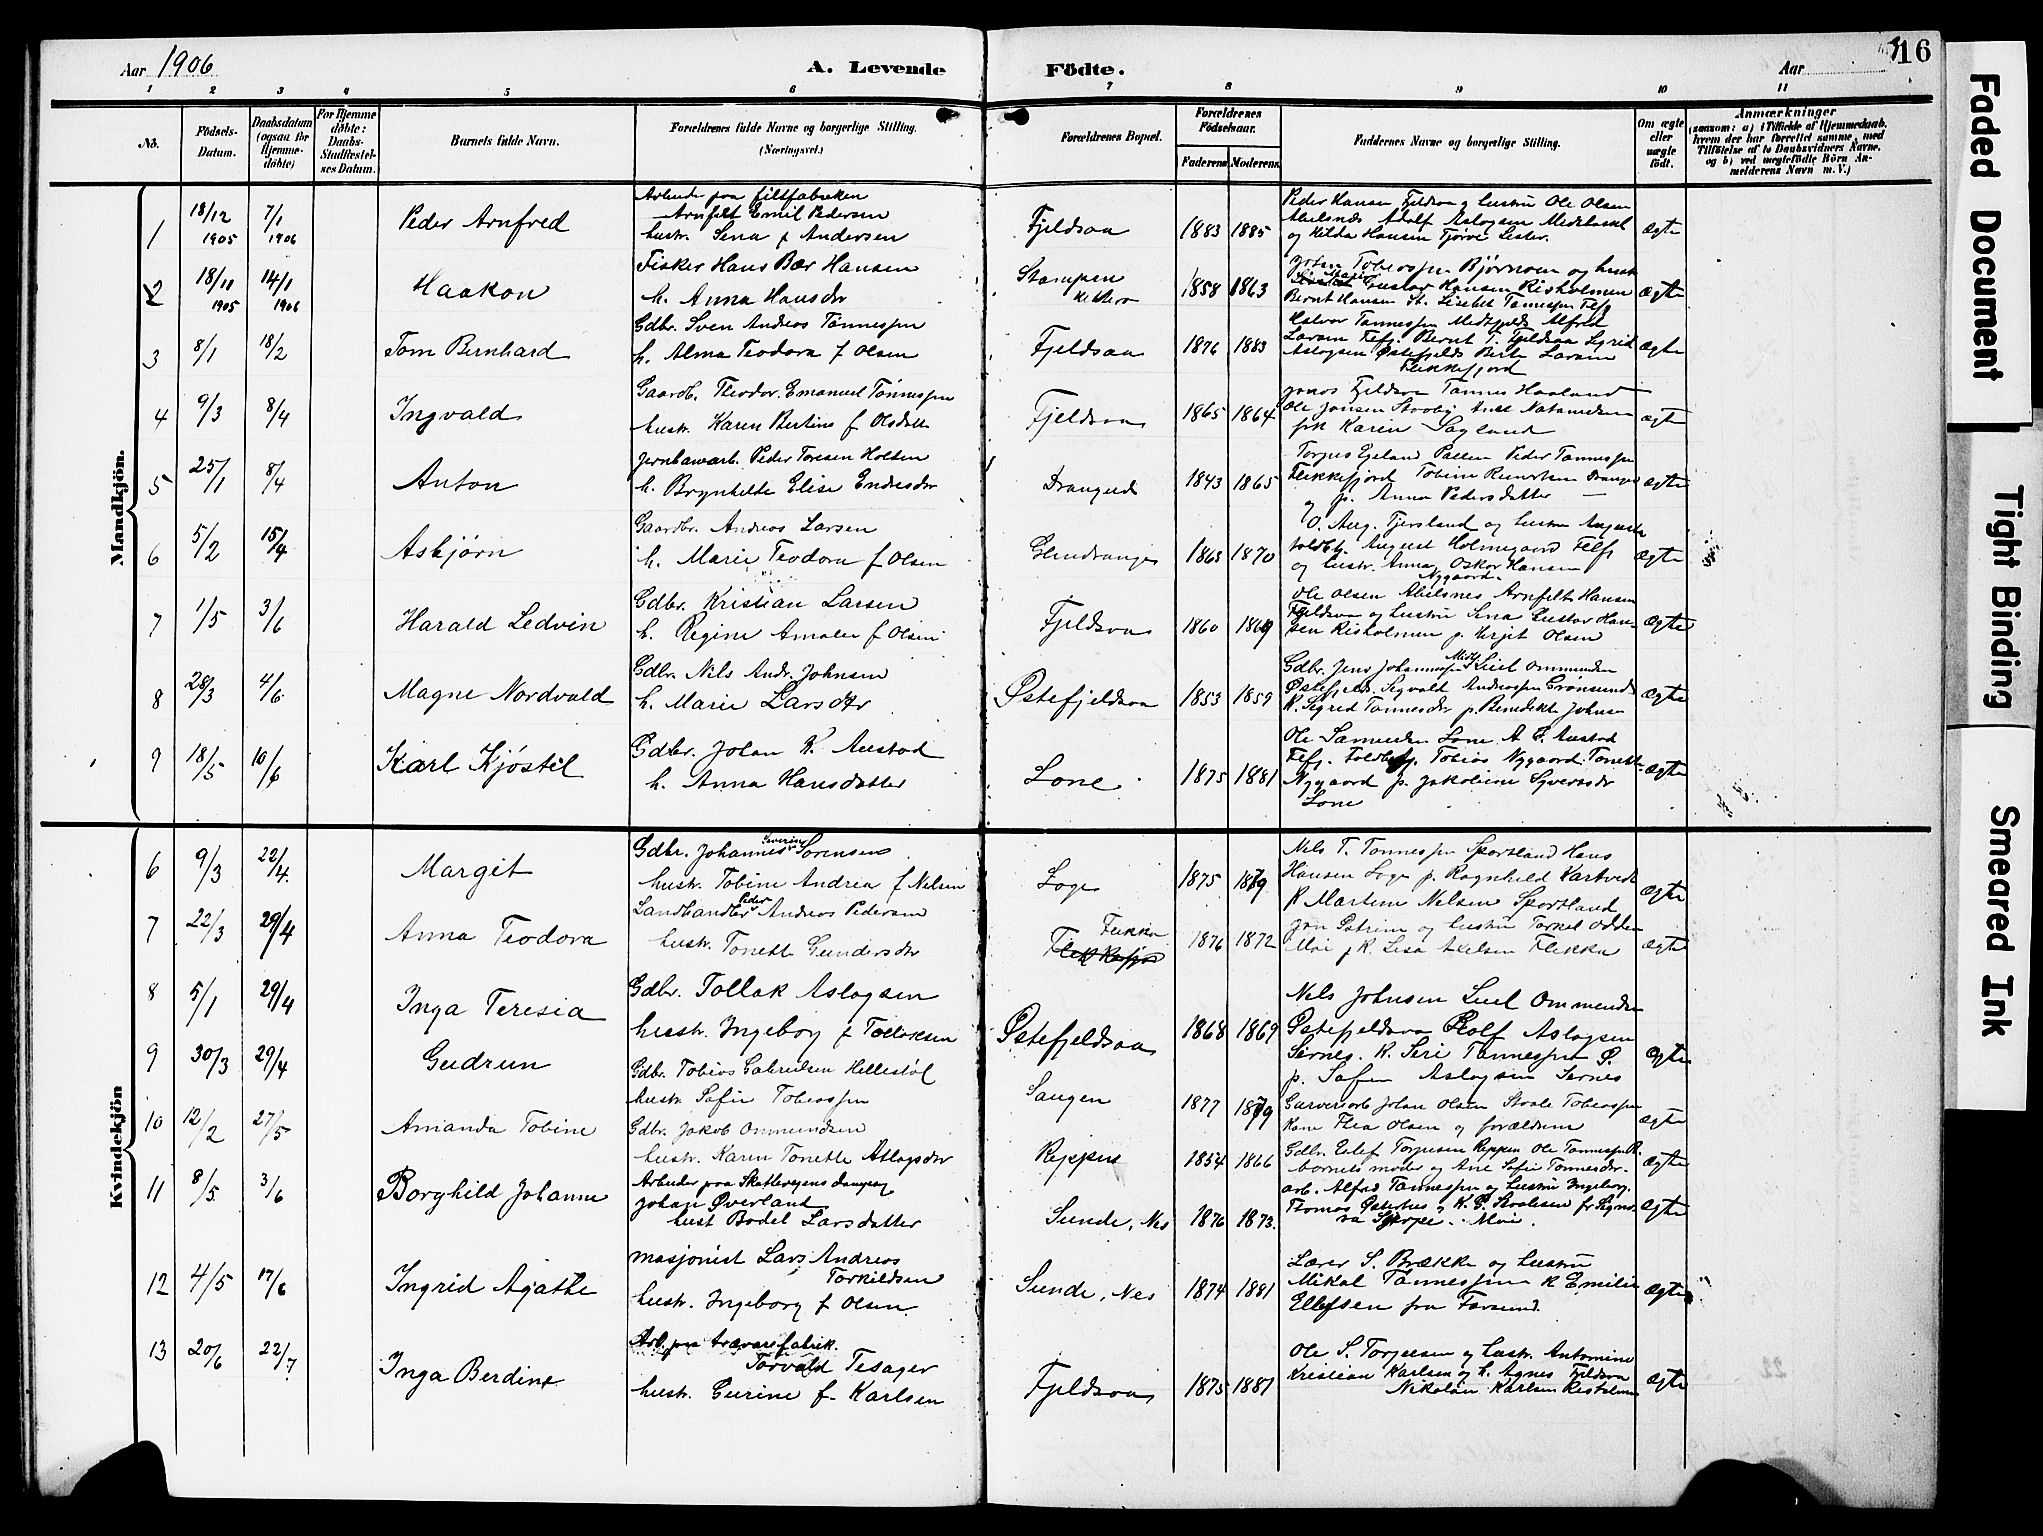 Aar 1906
A. Levende Födte.
Aar
16
1 2 3 4 5 6 7 8 9 10 11
No.
Födsels-Datum.
Daabsdatum (ogsaa för Hjemmedöbte)
For Hjemmedöbte: Daabs-Stadfæstelses Datum.
Barnets fulde Navn.
Forældrenes fulde Navne og borgerlige Stilling. (Næringsvei.)
Forældrenes Bopæl.
Forældrenes Födselsaar.
Faderens Moderens
Faddernes Navne og borgerlige Stilling.
Om ægte eller uægte födt.
Anmærkninger
(saasom: a) i Tilfælde af Hjemmedaab, hvem der har forrettet samme, med Tilföielse af to Daabsvidners Navne, og b) ved uægtefödte Börn Anmelderens Navn m. V.)
Mandkjön.
1 18/12 1905 7/1 1906 Peder Arnfred
Arbeider paa filtfabriken
Arnfelt Emil Pedersen
hustr. Sena f Andersen
Fjeldsaa 1883 1885
Peder Hansen Fjeldsaa og hustru Ole Olsen
Abelsnes Adolf Aslogsen
og Hilda Hansen Tjørve Lister.
ægte
2 18/11 1905 14/1 1906 Haakon
Fisker Hans Bær Hansen
h. Anna Hansdtr
Stampen
1858 1863
Tobiassen Bjørnoen og hustr
Gustav Hansen Risholmen
Bernt Hansen St. Lisbet Tønnessen Flfj
ægte
3 8/1 18/2 Tom Bernhard
Gdbr. Sven Andreas Tønnessen
h. Alma Teodora f Olsen
Fjeldsaa 1876 1883
Halvor Tønnessen Alfred
Larsen Flfj. Bernt T. Fjeldsaa Sigrid
Aslogsen Østefjelds Berte Larsen
Flekkefjord
ægte
4 9/3 8/4 Ingvald
Gaardb. Theodor Emanuel Tønnessen
hustr. Karen Bertine f Olsdatter
Fjeldsaa 1865 1864
Jonas Fjeldsaa Tønnes Haaland
Ole Jansen
Karen Søyland
ægte
5 25/1 8/4 Anton
Jernbanearb. Peder Toresen Holsen
h. Brynhilde Elise Endresdtr
Drangeid 1843 1865
Egeland Peder Tønnessen
Flekkefjord Tobine Drangeid
og p. Anna Pedersdatter
ægte
6 5/2 15/4 Asbjørn
Gaardbr. Andreas Larsen
h. Marie Teodora f Olsen
Glendrange 1863 1870
O. Aug. Tjersland og hustru Augusta
toldbtj. August Holmegaard Flfj
og hustr. Anna, Oskar Hansen
Nygaard.
ægte
7 1/5 3/6 Harald Ledvin
Gdbr. Kristian Larsen
h. Regine Amalie f Olsen
Fjeldsaa 1860 1869
Ole Olsen Abelsnes Arnfelt Hansen
Fjeldsaa og hustru Sena Gustav Han-
sen Risholmen p. Olsen
ægte
8 28/3 4/6 Magne Nordvald
Gdbr. Nils Andr. Johnsen
h. Marie Larsdtr
Østefjeldsaa 1853 1859
Gdbr. Jens Johannessen Ommundsen
Østefjelds. Sigvald Andreassen Grønsund
K. Sigrid Tønnesdtr p. Benedikte Johnsen
ægte
9 18/5 10/6 Karl Kjøstil
Gdbr. Johan K. Austad
h. Anna Hansdatter
Lone 1875 1881
Ole Samuelsen Lone A. S. Austad
Flfj. Toldbtj. Tobias Nygaard Tonette
Nygaard p. Jakobine Syversdtr
Lone
ægte
Kvindekjön
6 9/3 22/4 Margit
Gdbr. Johannes Severin Sørensen
hustr. Tobine Andrea f Nelsen
Loge 1875 1879
Nils T. Tønnessen Sportland Hans
Hansen Loge p. Ragnhild
K Martine Nelsen Sportland
ægte
7 22/3 29/4 Anna Teodora
Landhandler Peder Andreas Pedersen
hustr. Tonette Gundersdtr
Flikka
Flekkefjord
1876 1872
Jon og hustru Torkel Odden
Moi pK Lisa Axelsen Flikka
ægte
8 5/1 29/4 Inga Teresia
Gdbr. Tollak Aslogsen
hustr. Ingeborg f Tollaksen
Østefjeldsaa 1868 1869
Nils Johnsen Ommundsen
Østefjeldsaa Rolf Aslogsen
Sirnes. K. Siri Tønnessen Ø.
p. Sofie Aslogsen Sirnes
ægte
9 30/3 29/4 Gudrun
Gdbr. Tobias Gabrielsen Hellestøl
hustr Sofie Tobiassen
Saugen 1877 1879
Garverarb Johan Olsen Tobiassen
Kone Thea Olsen og forældrene
ægte
10 12/2 27/5 Amanda Tobine
Gdbr. Jakob Ommundsen
hustr. Karen Tonette Atlogsdtr
Reppen 1854 1866
Gdbr. Elef Torjusen Reppen Ole Tønnessen R.
barnets moder og Ane Sofie Tønnesdtr.
ægte
11 8/5 3/6 Borghild Johanne
Arbeider paa Skattevejens dampsag
Johan Øverland
hust Bodel Larsdatter
Sunde, Nes 1876 1873.
arb. Alfred Tønnessen og hustru Ingeborg.
Tomas
Moi.
ægte
12 4/5 17/6 Ingrid Agathe
masjonist Lars Andreas
Torkildsen
hustr. Ingeborg f Olsen.
Sunde, Nes 1874 1881
Lærer S. Brække og hustru
Mikal Tønnessen K Emilie
Ellefsen fra Farsund.
ægte
13 20/6 22/7 Inga Berdine
Arb. paa trævarefabrik.
Torvald Tesager
hustr. Gurine f. Karlsen
Fjeldsaa 1875 1881
Ole S. Torjusen og hustr. Antomine
Kristian Karlsen og h. Agnes Fjeldsaa
Nikolai Karlsen Risholmen
ægte
Faded Document
Tight Binding
Smeared Ink